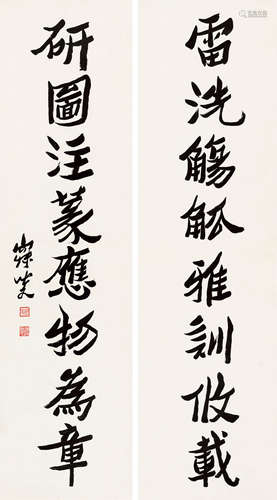 雷洗觴觚雅訓攸載
研圖注篆應物為章